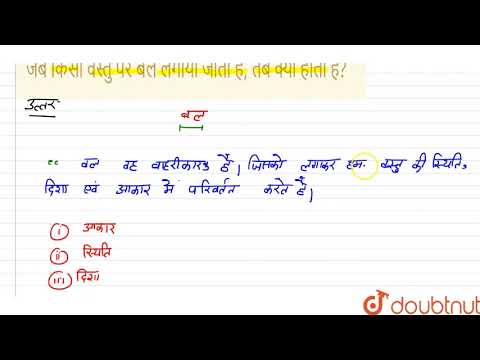 जब किसी वस्तु पर बल लगाया जाता है, तब क्या होता है?
उत्तर
बल
"" बल वह बाहरी कारक है, जिसको लगाकर हम वस्तु की स्थिति,
दिशा एवं आकार में परिवर्तन करते है।
(i) आकार
(ii) स्थिति
(iii) दिशा
doubtnut